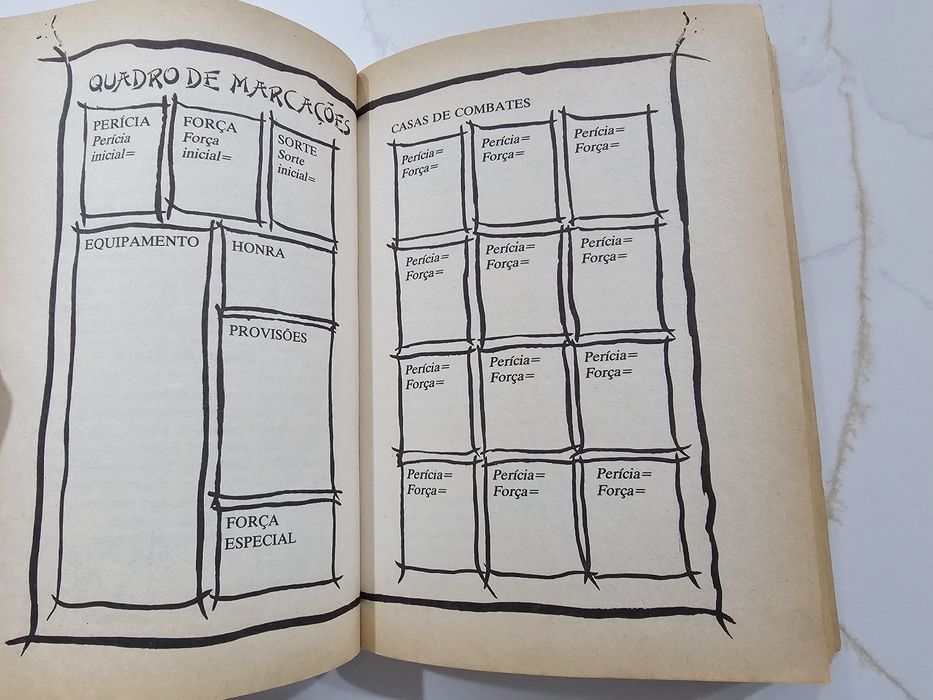 QUADRO DE MARCAÇÕES
PERÍCIA
Perícia
inicial=
FORÇA
Força
inicial=
SORTE
Sorte
inicial=
EQUIPAMENTO
HONRA
PROVISÕES
FORÇA
ESPECIAL
CASAS DE COMBATES
Perícia=
Força=
Perícia=
Força=
Perícia=
Força=
Perícia=
Força=
Perícia=
Força=
Perícia=
Força=
Perícia=
Força=
Perícia=
Força=
Perícia=
Força=
Perícia=
Força=
Perícia=
Força=
Perícia=
Força=